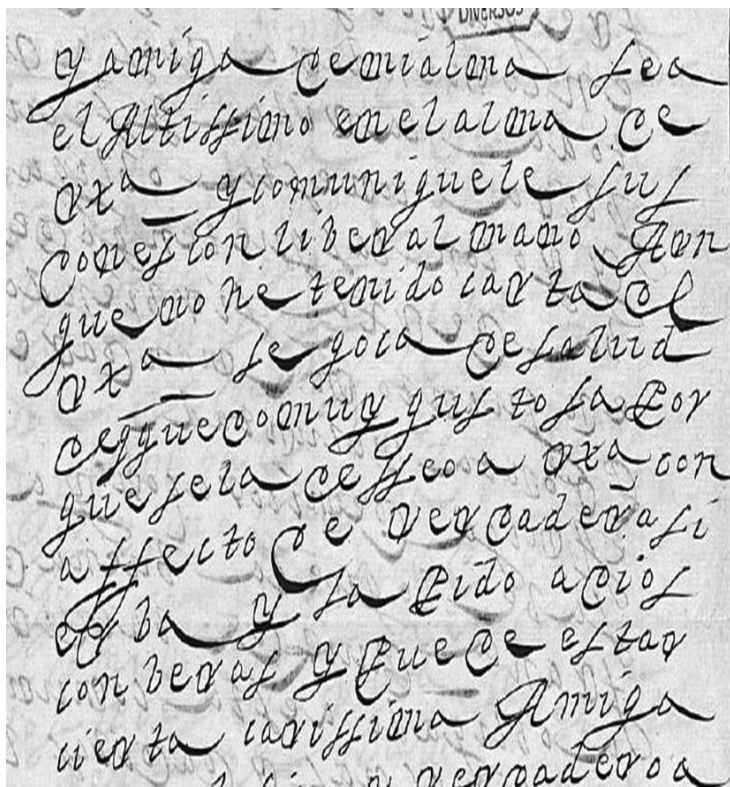 DIVERSOS
y amiga de mi alma sea
el Altissimo en el alma de
vxa y comuniquele sus
dones con liberal mano Aun
que no he tenido carta de
vxa se goca de salud
de q quedo muy gustosa por
que se la desseo a vxa con
affecto de verdadera si
erba y la pido a dios
con beras y puede estar
cierta carissima Amiga
verdadero a